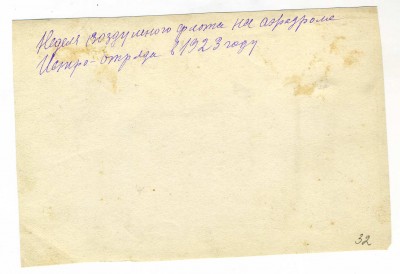 Неделя воздушного флота на аэродроме
Истро-отряда в 1923 году
32